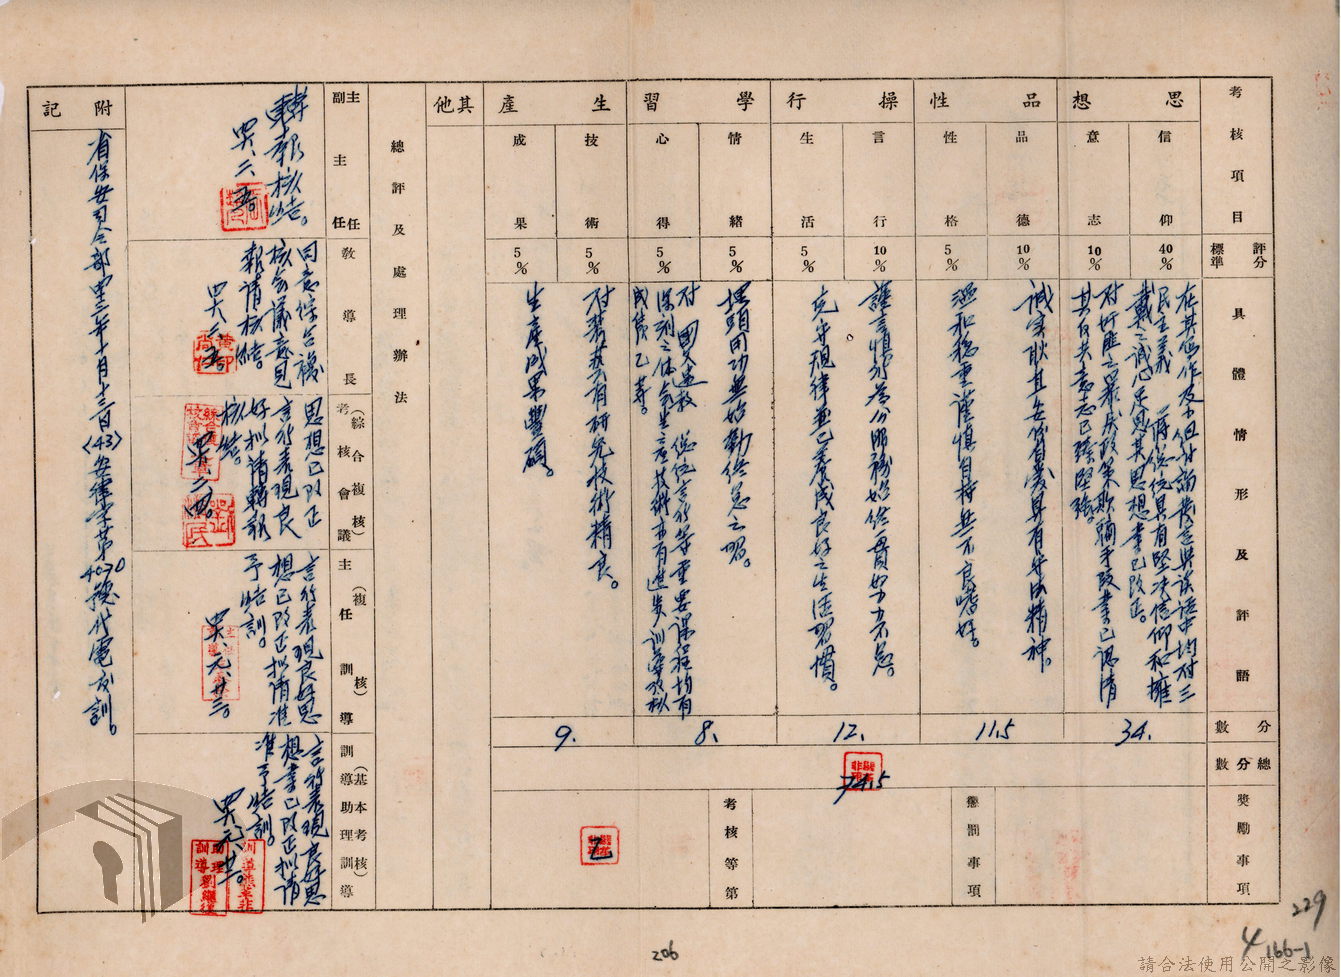 考核項目
思想
信仰
意志
品性
品德
性格
操行
言行
生活
學習
情緒
心得
生產
技術
成果
其他
總評及處理辦法
主任
副主任
教導長
（綜合複核）
考核會議
（複核）
主任訓導
（基本考核）
訓導助理訓導
附記
評分標準
40%
10%
10%
5%
10%
5%
5%
5%
5%
5%
具體情形及評語
在其寫作及
均對三
民主義
蔣總位具有堅決信仰和擁
戴之誠心足見其思想書已改正。
對奸匪之暴戾政策欺騙手段書已認清
其反共意志已臻堅強。
誠實耿直
自愛具有守法精神。
溫和穩重謹慎自持無不良嗜好。
謹言慎行
始終一貫努力不怠。
克守規律並已養成良好之生活習慣。
埋頭用功無始勤終怠之習。
對國父遺教
總位言行等重要課程均有
深刻之体
生產技術亦有進
成績乙等。
對
有研究技術精良。
生產成果豐碩。
分數
34.
11.5
12.
8.
9.
總分數
74.5
獎勵事項
懲罰事項
考核等第
乙
轉報核結。
四六、二、五
同意綜合複
核會議意見
報請核結。
四六、二、五
思想已改正
言行表現良
好擬請轉報
核結。
四六、二、四。
言行表現良好思
想已改正擬請准
予結訓。
四六、元、廿三。
言行表現良好思
想書已改正擬請
准予結訓。
四六、元、廿
助理訓導劉繼
省保安司令部四三年十月十三日(43)安律字第4070號代電交訓。
206
229
4
166-1
請合法使用公開之影像